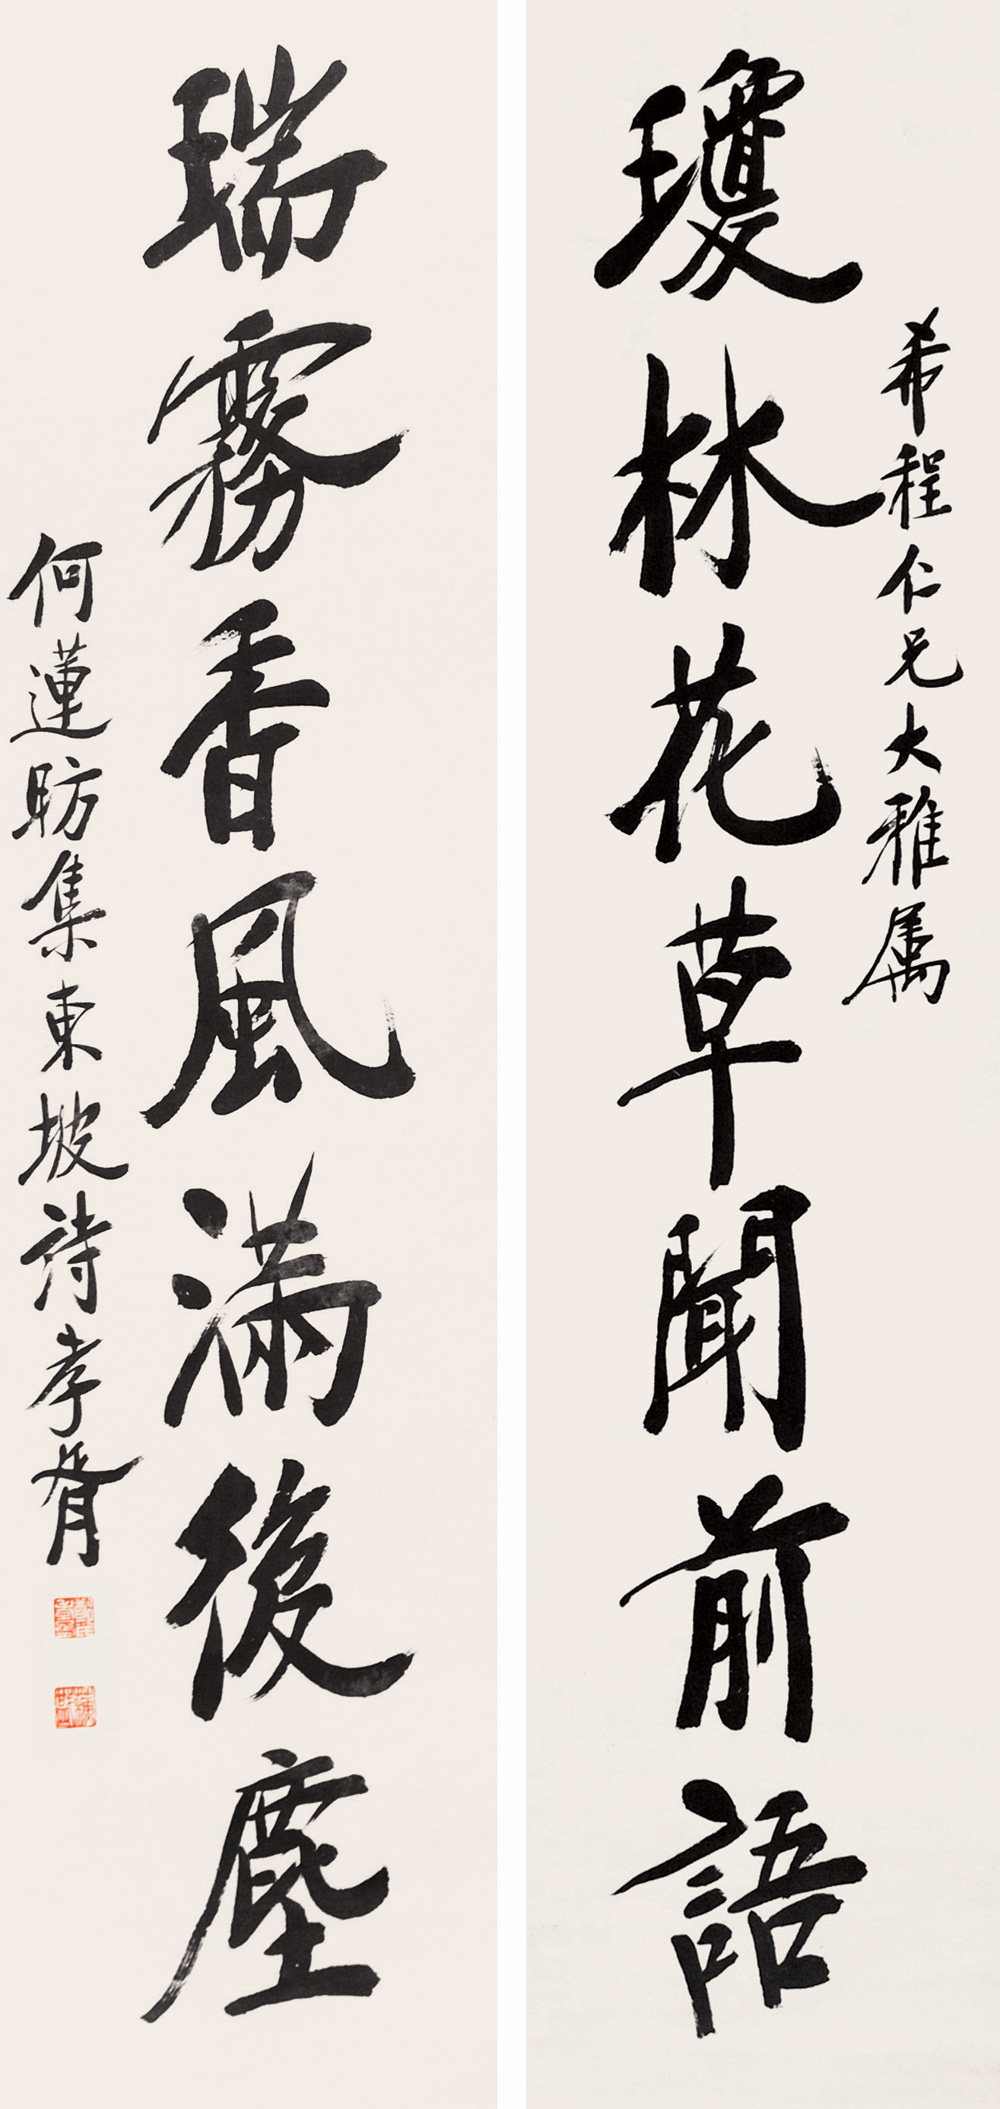 希程仁兄大雅属
瓊林花草聞前語
瑞霧香風滿後塵
何蓮昉集東坡詩孝胥